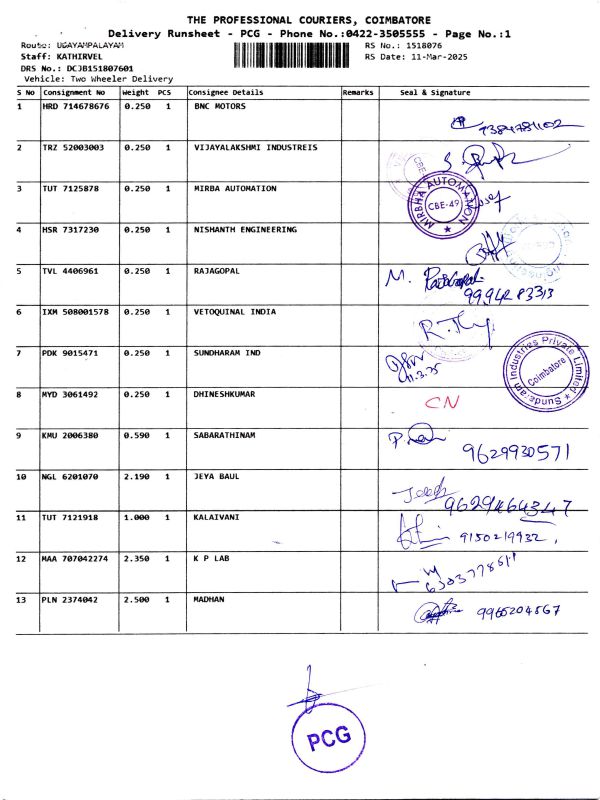 THE PROFESSIONAL COURIERS, COIMBATORE
Delivery Runsheet - PCG - Phone No.:0422-3505555 - Page No.:1
Route: UDAYAMPALAYAM RS No.: 1518076
Staff: KATHIRVEL RS Date: 11-Mar-2025
DRS No.: DCJB151807601
Vehicle: Two Wheeler Delivery
S No Consignment No Weight PCS Consignee Details Remarks Seal & Signature
1 HRD 714678676 0.250 1 BNC MOTORS
2 TRZ 52003003 0.250 1 VIJAYALAKSHMI INDUSTREIS
3 TUT 7125878 0.250 1 MIRBA AUTOMATION MIRBHA AUTOMATION CBE-49
4 HSR 7317230 0.250 1 NISHANTH ENGINEERING
5 TVL 4406961 0.250 1 RAJAGOPAL M. Rajagopal
99942 83313
6 IXM 508001578 0.250 1 VETOQUINAL INDIA
7 PDK 9015471 0.250 1 SUNDHARAM IND 11.3.25 Sundaram Industries Private Limited Coimbatore
8 MYD 3061492 0.250 1 DHINESHKUMAR CN
9 KMU 2006380 0.590 1 SABARATHINAM 9629930571
10 NGL 6201070 2.190 1 JEYA BAUL 9629464347
11 TUT 7121918 1.000 1 KALAIVANI 9150219932
12 MAA 707042274 2.350 1 K P LAB
13 PLN 2374042 2.500 1 MADHAN 9965204567
PCG